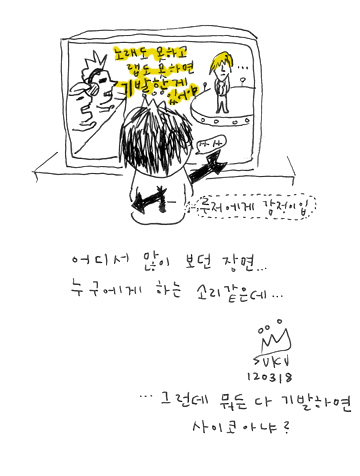 노래도 못하고
랩도 못하면
기발한 게
있어야
...
루저에게 감정이입
어디서 많이 보던 장면...
누구에게 하는 소리같은데...
SUKU
120318
... 그런데 뭐든 다 기발하면
사이코 아냐?